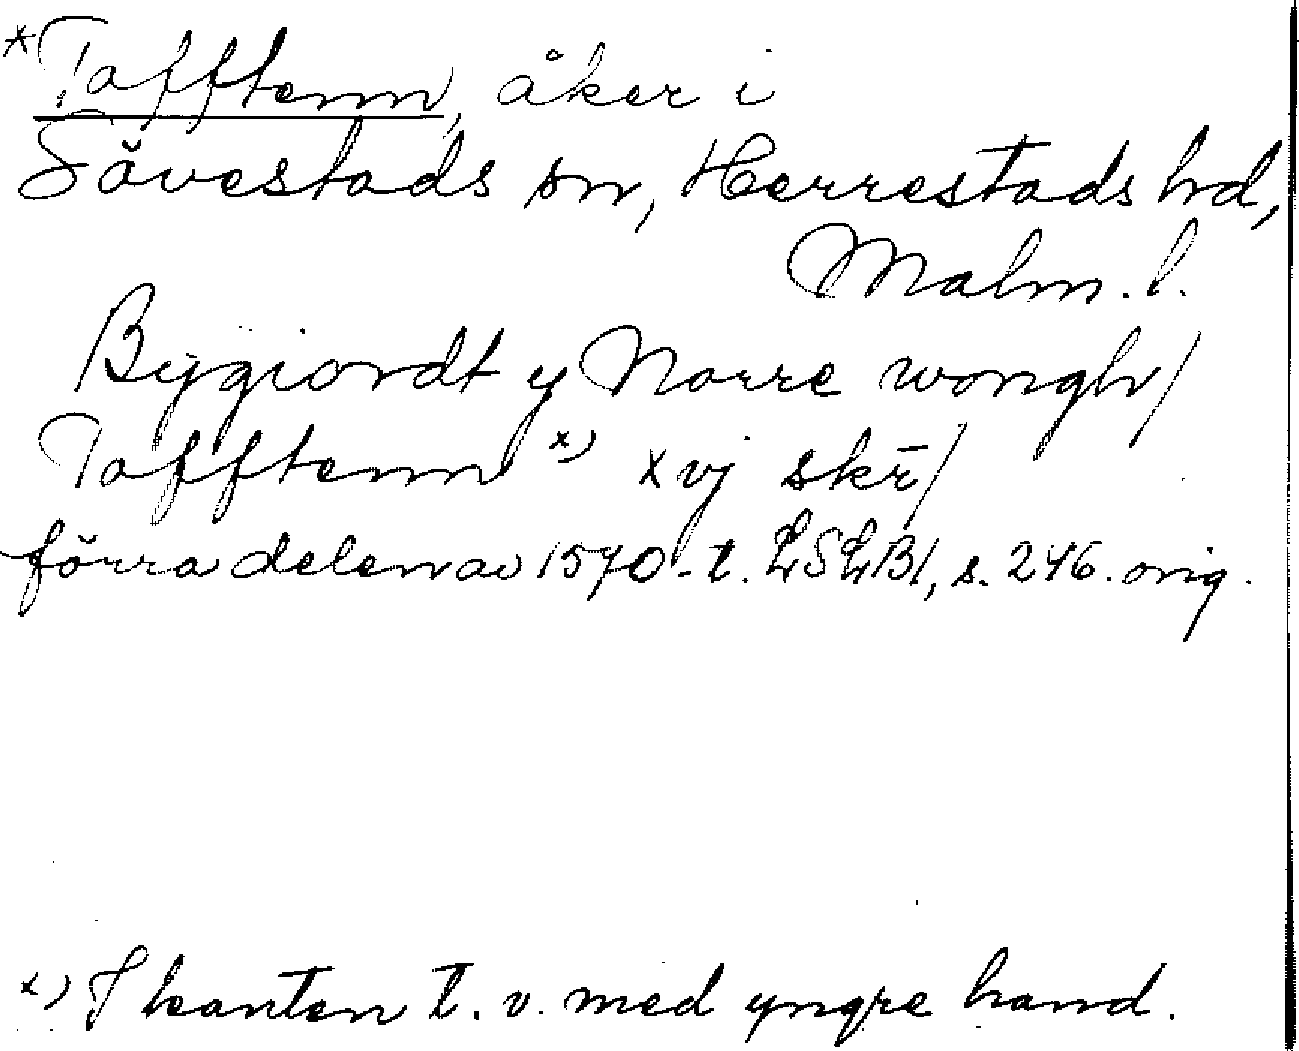 *Tafftenn, åker i
Sövestads sn, Herrestads hd,
Malm. l.
Bÿgiordt y Norre wongh/
Tafftenn x) xvj skr̄/
förra delen av 1570-t. LSLB1, s. 246. orig.
x) I kanten t. v. med yngre hand.